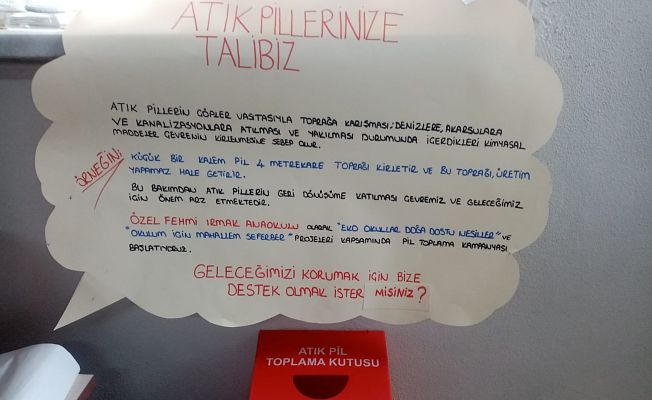 ATIK PİLLERİNİZE
TALİBİZ
ATIK PİLLERİN ÇÖPLER VASITASIYLA TOPRAĞA KARIŞMASI; DENİZLERE, AKARSULARA
VE KANALİZASYONLARA ATILMASI VE YAKILMASI DURUMUNDA İÇERDİKLERİ KİMYASAL
MADDELER ÇEVRENİN KİRLENMESİNE SEBEP OLUR.
ÖRNEĞİN;
KÜÇÜK BİR KALEM PİL 4 METREKARE TOPRAĞI KİRLETİR VE BU TOPRAĞI, ÜRETİM
YAPAMAZ HALE GETİRİR.
BU BAKIMDAN ATIK PİLLERİN GERİ DÖNÜŞÜME KATILMASI ÇEVREMİZ VE GELECEĞİMİZ
İÇİN ÖNEM ARZ ETMEKTEDİR.
ÖZEL FEHMİ IRMAK ANAOKULU OLARAK "EKO OKULLAR DOĞA DOSTU NESİLLER" VE
"OKULUM İÇİN MAHALLEM SEFERBER" PROJELERİ KAPSAMINDA PİL TOPLAMA KAMPANYASI
BAŞLATIYORUZ.
GELECEĞİMİZİ KORUMAK İÇİN BİZE
DESTEK OLMAK İSTER MİSİNİZ?
ATIK PİL
TOPLAMA KUTUSU